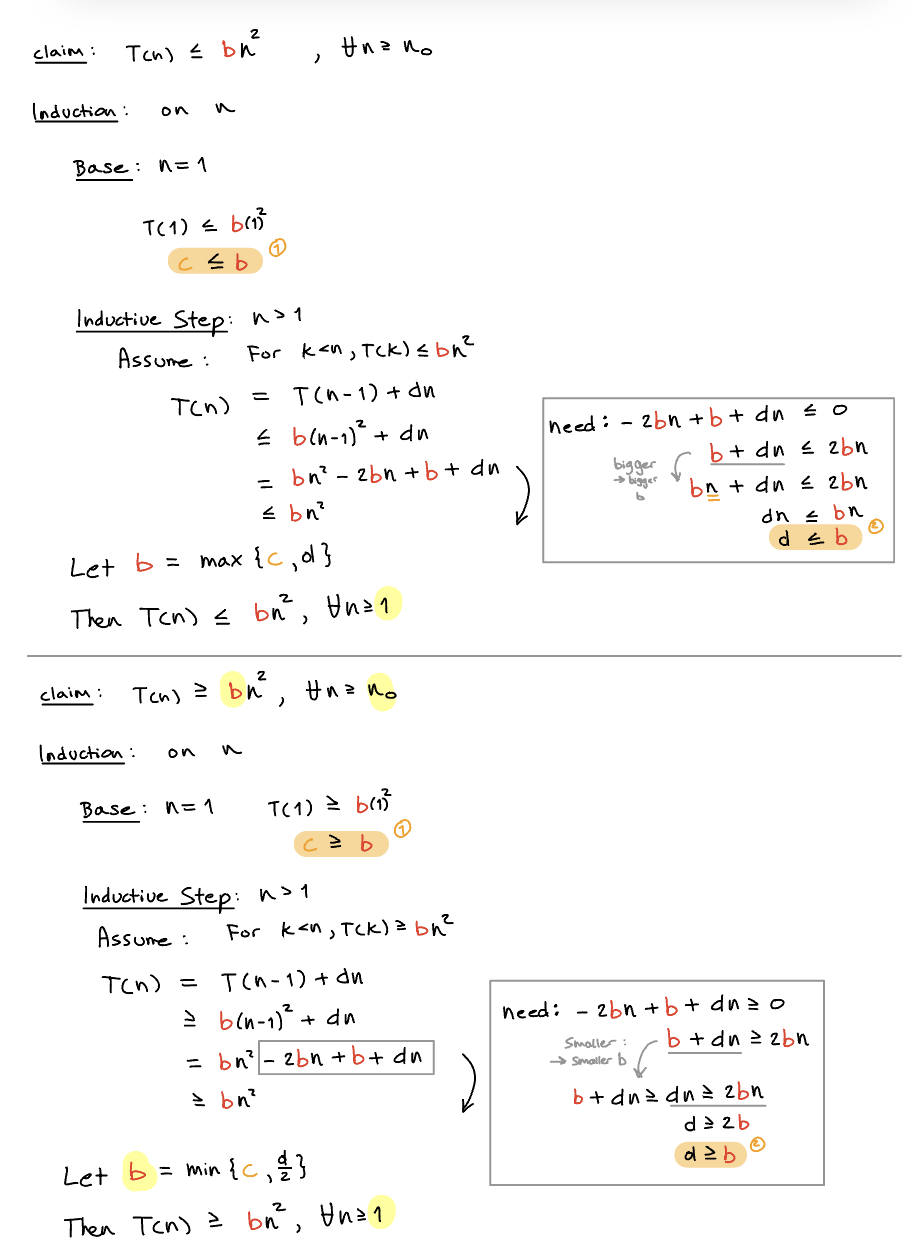 claim: T(n) ≤ bn² , ∀n ≥ n₀
Induction: on n
Base: n = 1
T(1) ≤ b(1)²
c ≤ b ①
Inductive Step: n > 1
Assume: For k<n, T(k) ≤ bn²
T(n) = T(n-1) + dn
≤ b(n-1)² + dn
= bn² - 2bn + b + dn
≤ bn²
need: - 2bn + b + dn ≤ 0
b + dn ≤ 2bn
bigger
→ bigger
b
bn + dn ≤ 2bn
dn ≤ bn
d ≤ b ②
Let b = max {c, d}
Then T(n) ≤ bn², ∀n ≥ 1
claim: T(n) ≥ bn², ∀n ≥ n₀
Induction: on n
Base: n = 1 T(1) ≥ b(1)²
c ≥ b ①
Inductive Step: n > 1
Assume: For k<n, T(k) ≥ bn²
T(n) = T(n-1) + dn
≥ b(n-1)² + dn
= bn² - 2bn + b + dn
≥ bn²
need: - 2bn + b + dn ≥ 0
b + dn ≥ 2bn
Smaller:
→ Smaller b
b + dn ≥ dn ≥ 2bn
d ≥ 2b
d ≥ b ②
Let b = min {c, d/2}
Then T(n) ≥ bn², ∀n ≥ 1